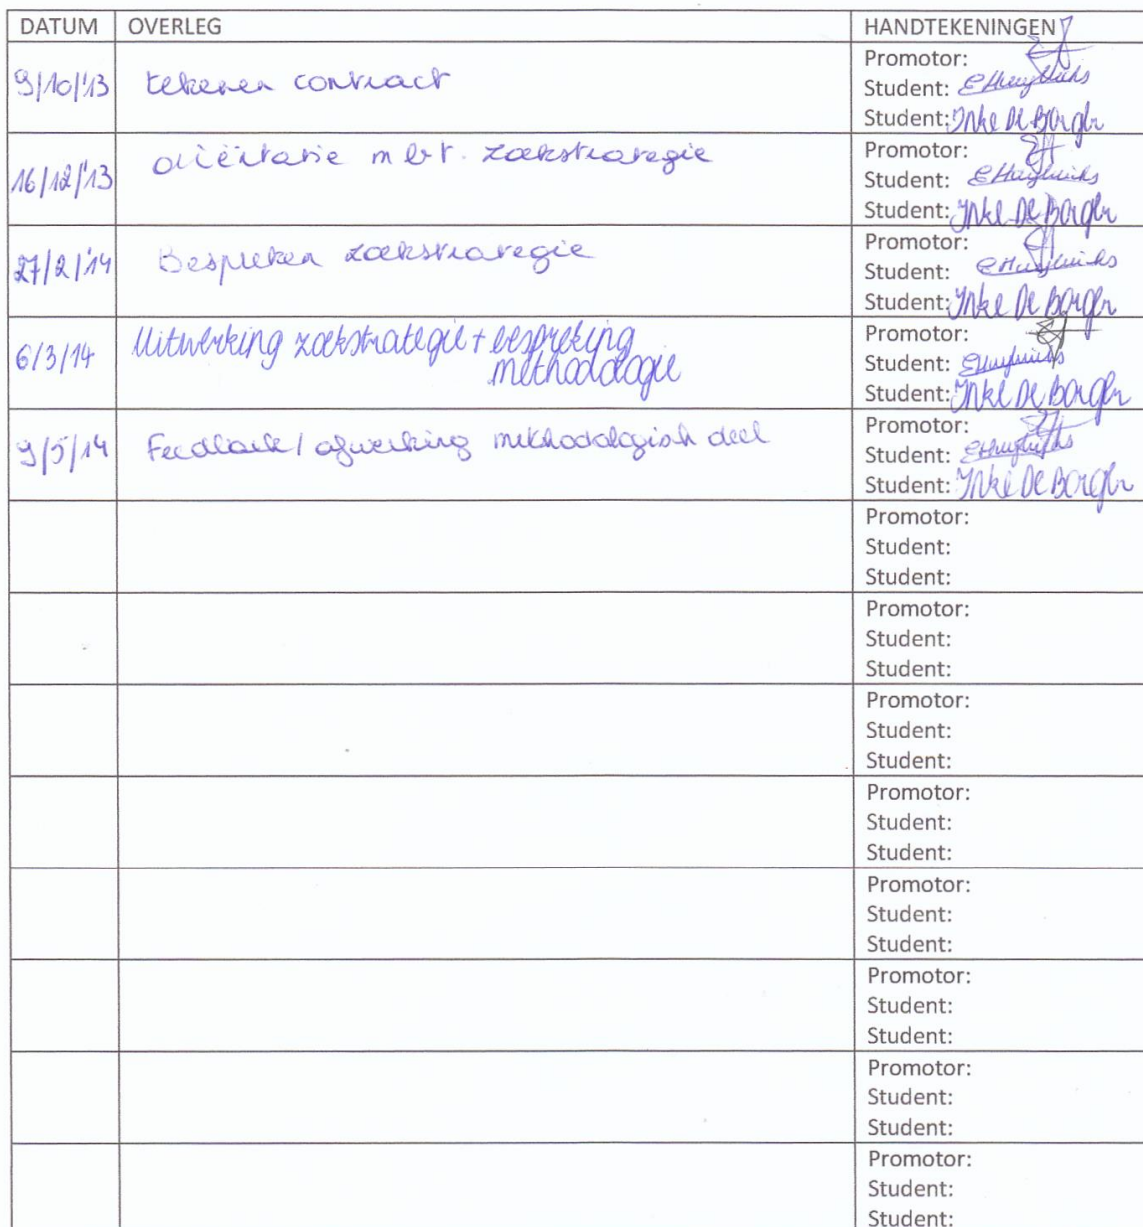 DATUM OVERLEG HANDTEKENINGEN
9/10/'13 tekenen contract Promotor:
Student:
Student: Inke De Borger
16/12/'13 oriëntatie mbt. zoekstrategie Promotor:
Student:
Student: Inke De Borger
27/2/'14 Bespreken zoekstrategie Promotor:
Student:
Student: Inke De Borger
6/3/14 Uitwerking zoekstrategie + bespreking Promotor:
methodologie Student:
Student: Inke De Borger
9/5/14 Feedback / afwerking methodologisch deel Promotor:
Student:
Student: Inke De Borger
Promotor:
Student:
Student:
Promotor:
Student:
Student:
Promotor:
Student:
Student:
Promotor:
Student:
Student:
Promotor:
Student:
Student:
Promotor:
Student:
Student:
Promotor:
Student:
Student:
Promotor:
Student:
Student: